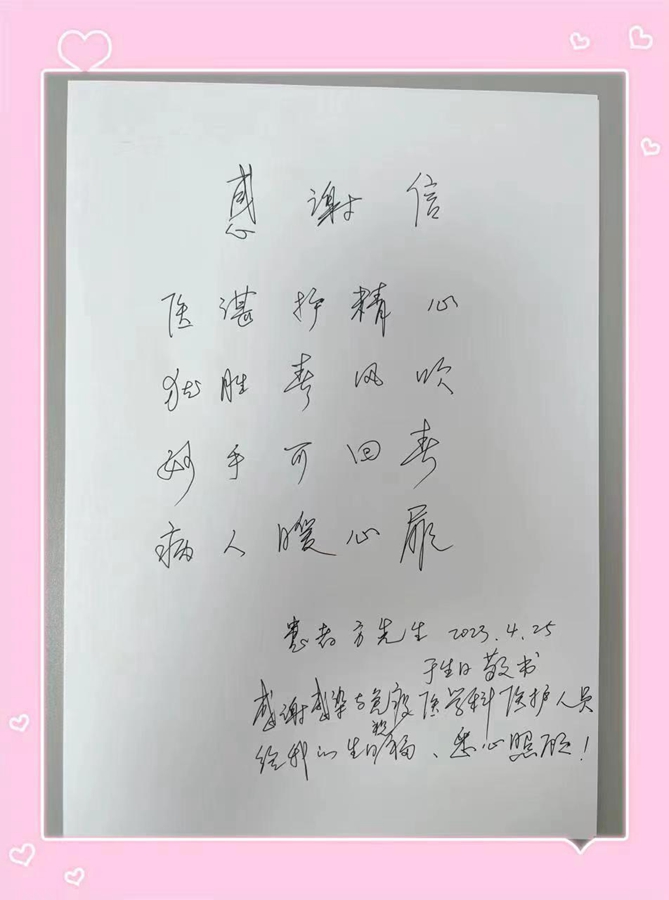 感谢信
医湛护精心
犹胜春风吹
妙手可回春
病人暖心扉
患者方先生 2023.4.25
于生日敬书
感谢感染与免疫医学科医护人员
给我的生日祝福、悉心照顾!